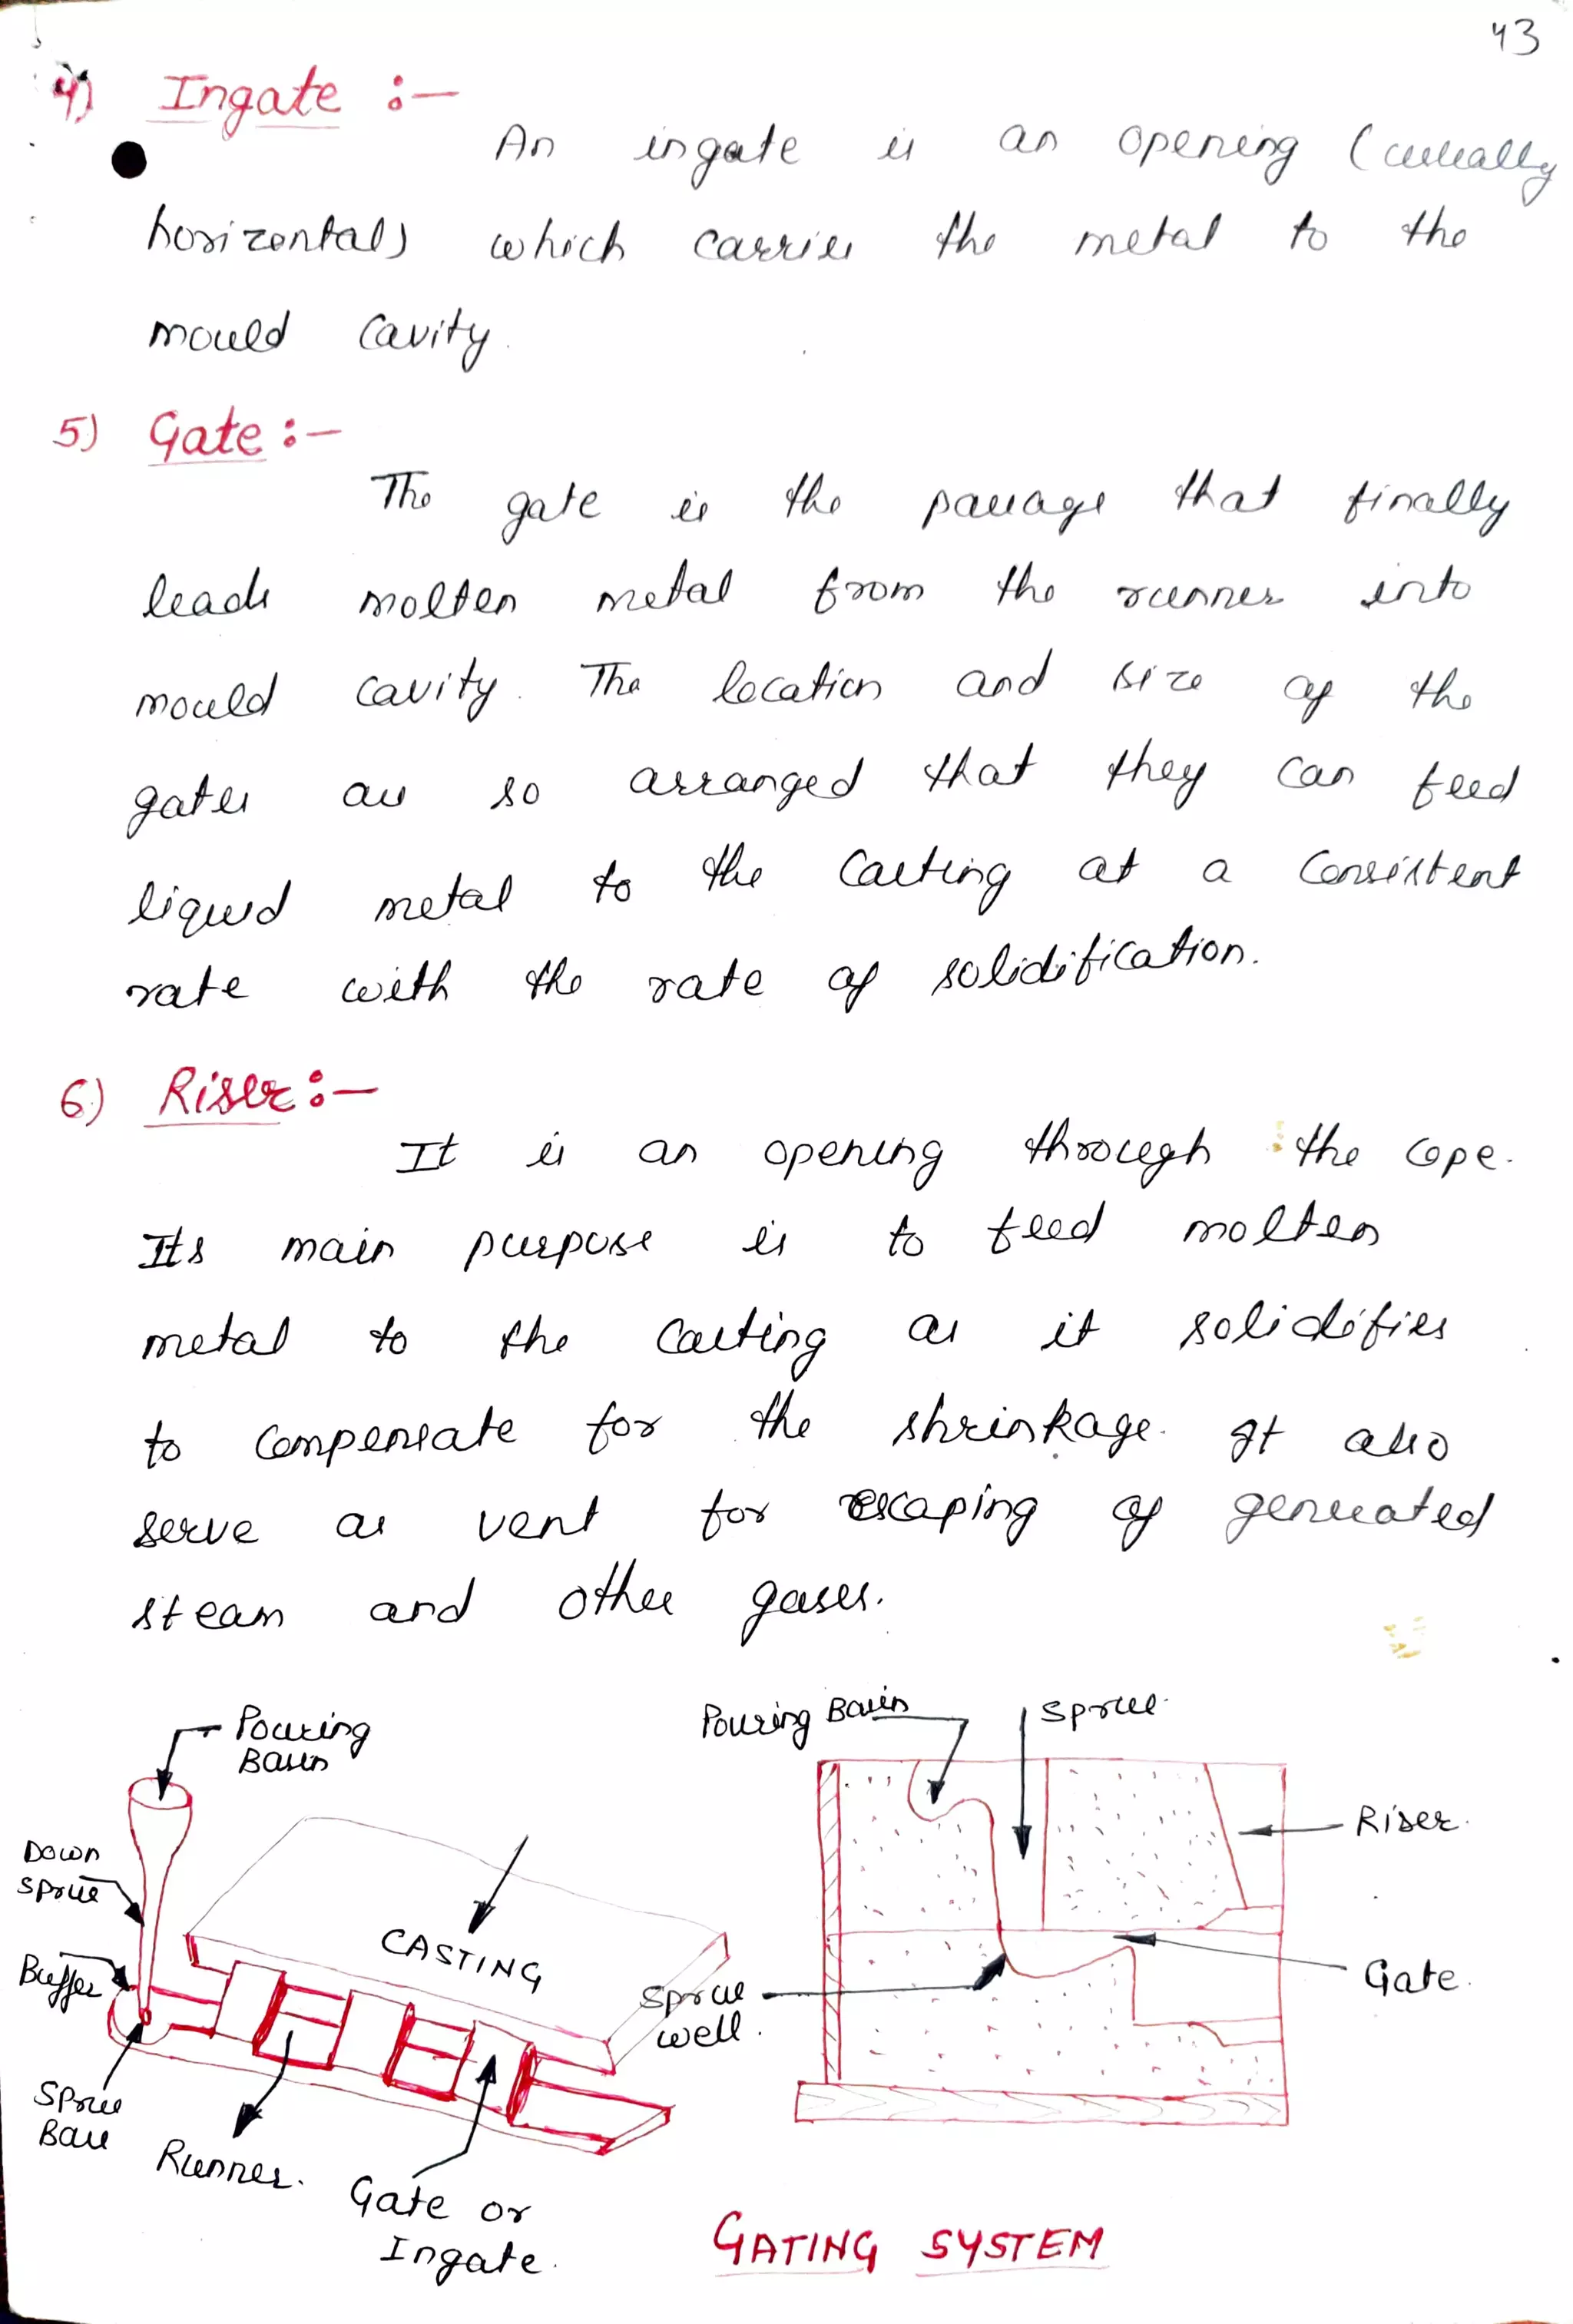 43
4) Ingate :-
An ingate is an opening (usually
horizontal) which carries the metal to the
mould cavity.
5) Gate :-
The gate is the passage that finally
leads molten metal from the runner into
mould cavity. The location and size of the
gates are so arranged that they can feed
liquid metal to the casting at a consistent
rate with the rate of solidification.
6) Riser :-
It is an opening through the cope.
Its main purpose is to feed molten
metal to the casting as it solidifies
to compensate for the shrinkage. It also
serve as vent for escaping of generated
steam and other gases.
Pouring
Basin
Down
sprue
Buffer
Sprue
Base
Runner.
Gate or
Ingate.
CASTING
Pouring Basin
Sprue.
Riser.
Gate.
Sprue
well.
GATING SYSTEM